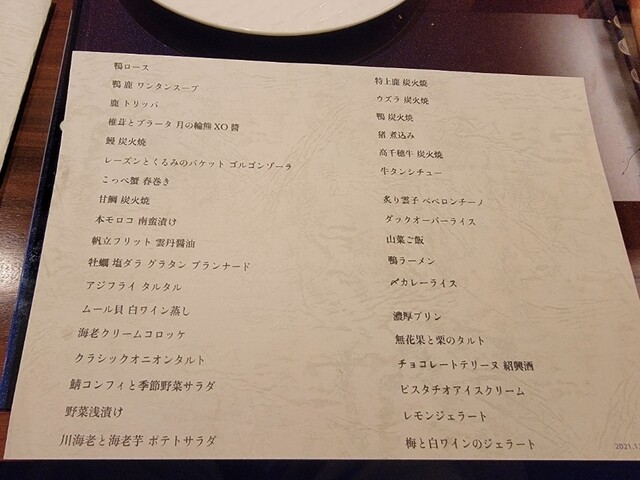 鴨ロース
鴨 鹿 ワンタンスープ
鹿 トリッパ
椎茸とブラータ 月の輪熊 XO 醬
鰻 炭火焼
レーズンとくるみのバケット ゴルゴンゾーラ
こっぺ蟹 春巻き
甘鯛 炭火焼
本モロコ 南蛮漬け
帆立フリット 雲丹醤油
牡蠣 塩ダラ グラタン ブランナード
アジフライ タルタル
ムール貝 白ワイン蒸し
海老クリームコロッケ
クラシックオニオンタルト
鯖コンフィと季節野菜サラダ
野菜浅漬け
川海老と海老芋 ポテトサラダ
特上鹿 炭火焼
ウズラ 炭火焼
鴨 炭火焼
猪 煮込み
高千穂牛 炭火焼
牛タンシチュー
炙り雲子 ペペロンチーノ
ダックオーバーライス
山菜ご飯
鴨ラーメン
〆カレーライス
濃厚プリン
無花果と栗のタルト
チョコレートテリーヌ 紹興酒
ピスタチオアイスクリーム
レモンジェラート
梅と白ワインのジェラート